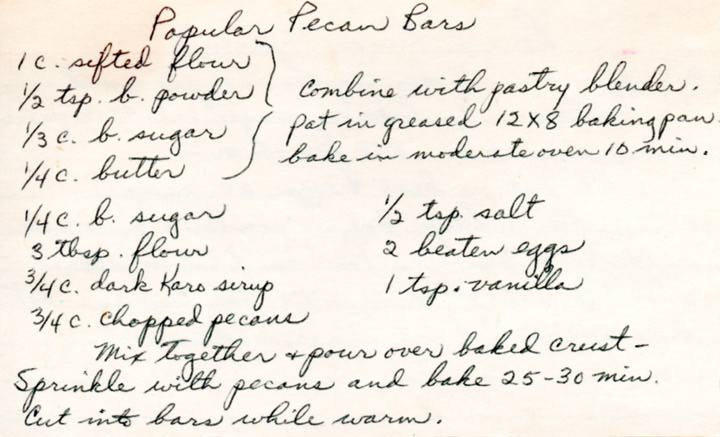 Popular Pecan Bars
1 c. sifted flour
1/2 tsp. b. powder
1/3 c. b. sugar
1/4 c. butter
Combine with pastry blender.
pat in greased 12x8 baking pan.
bake in moderate oven 10 min.
1/4 c. b. sugar
3 tbsp. flour
3/4 c. dark Karo sirup
3/4 c. chopped pecans
1/2 tsp. salt
2 beaten eggs
1 tsp. vanilla
Mix together + pour over baked crust -
Sprinkle with pecans and bake 25-30 min.
Cut into bars while warm.